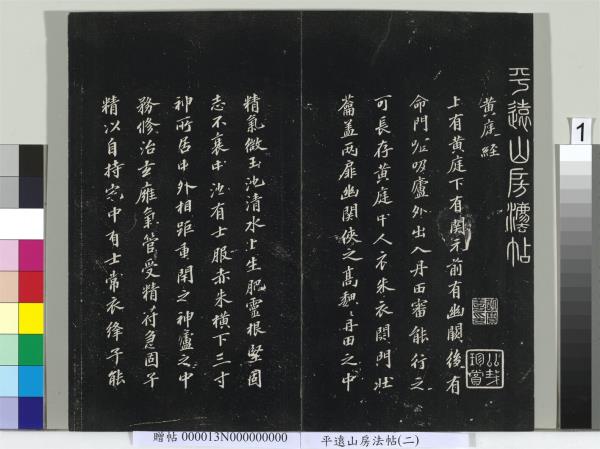 平遠山房法帖
黃庭経
上有黃庭下有関元前有幽闕後有
命門噓吸廬外出入丹田審能行之
可長存黃庭中人衣朱衣関門壮
籥盖両扉幽関俠之髙魏〻丹田之中
精氣微玉池清水上生肥霊根堅固
志不衰中池有士服赤朱横下三寸
神所居中外相距重閇之神廬之中
務修治玄廱氣管受精符急固子
精以自持宅中有士常衣絳子能
珍賞
1
贈帖 000013N000000000
平遠山房法帖(二)